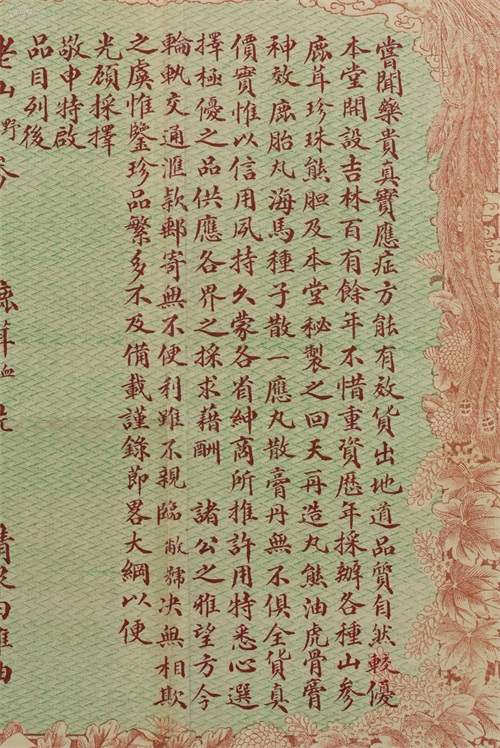 嘗聞藥貴真實應症方能有效貨出地道品質自然較優
本堂開設吉林百有餘年不惜重資歷年採辦各種山參
鹿茸珍珠熊胆及本堂秘製之回天再造丸熊油虎骨膏
神效鹿胎丸海馬種子散一應丸散膏丹無不俱全貨真
價實惟以信用夙持久蒙各省紳商所推許用特悉心選
擇極優之品供應各界之採求藉酬 諸公之雅望方今
輪軌交通滙款郵寄無不便利雖不親臨敝號决無相欺
之虞惟鑒珍品繁多不及備載謹錄節畧大綱以便
光顧採擇
敬申特啟
品目列後
老山野參 鹿茸血